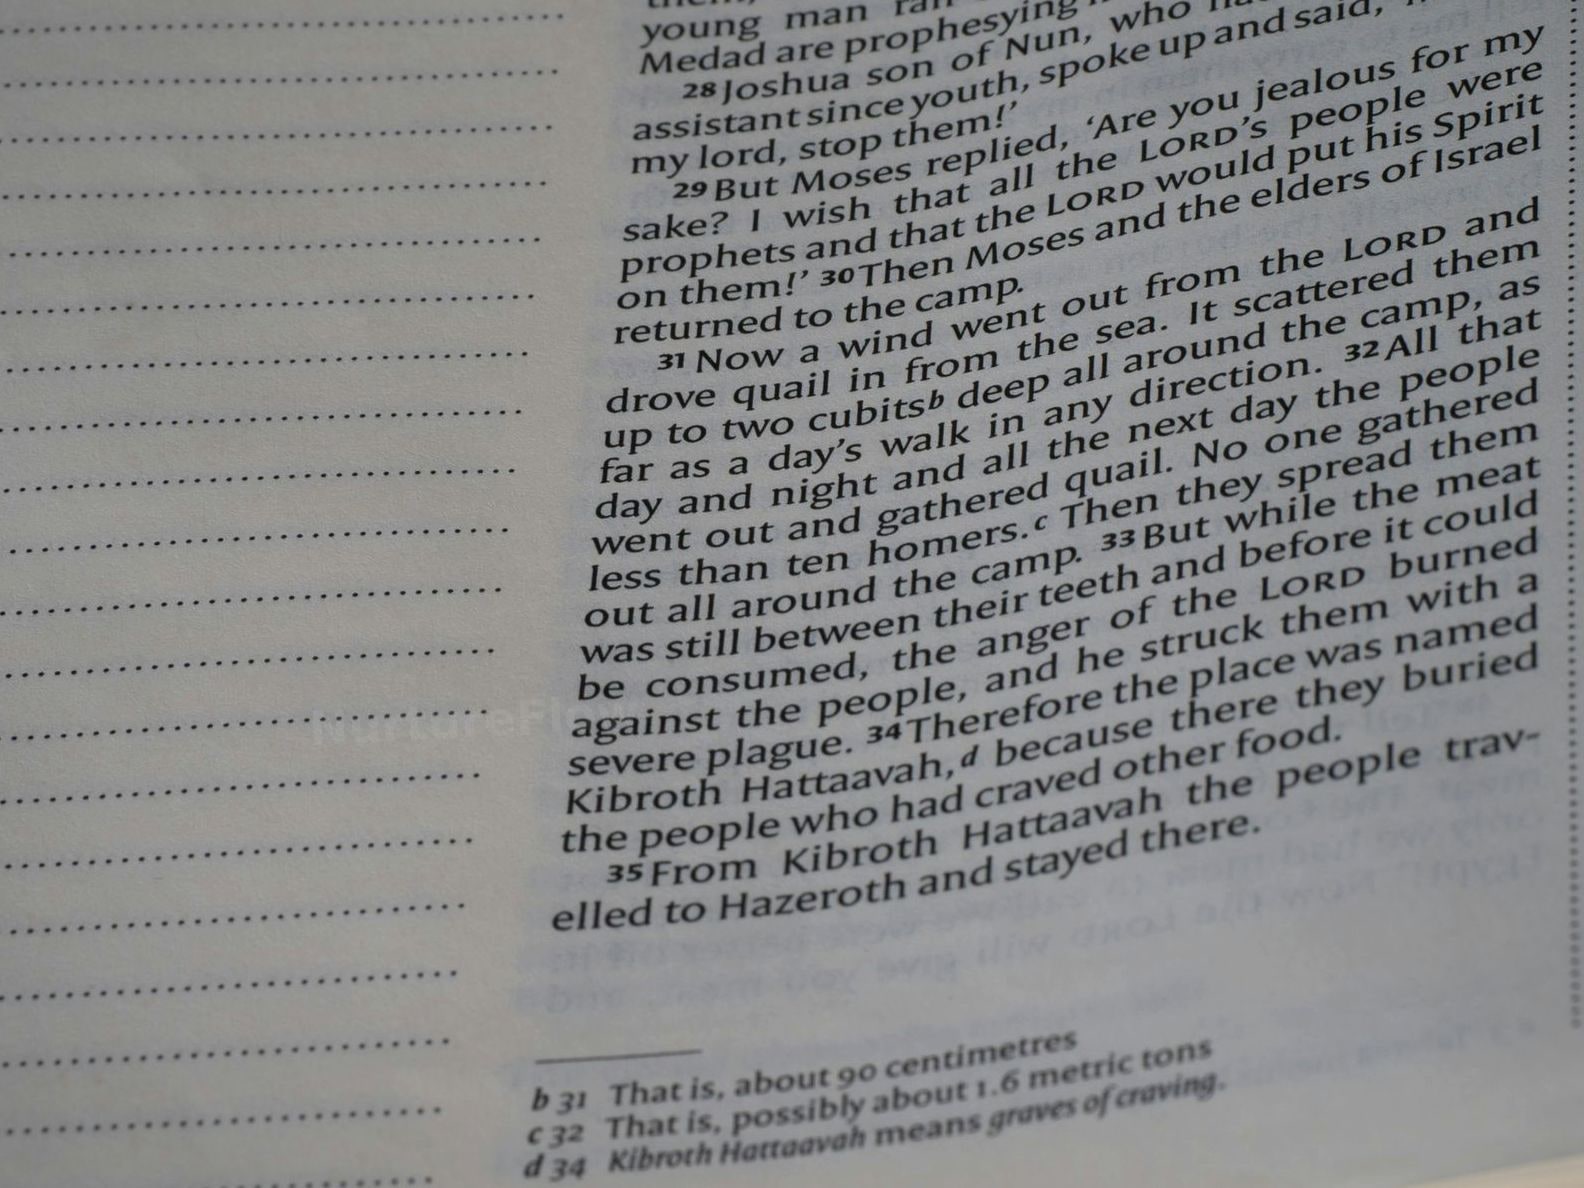 young man ran
Medad are prophesying
28 Joshua son of Nun, who
assistant since youth, spoke up and said,
my lord, stop them!'
29 But Moses replied, 'Are you jealous for my
sake? I wish that all the LORD's people were
prophets and that the LORD would put his Spirit
on them!' 30 Then Moses and the elders of Israel
returned to the camp.
31 Now a wind went out from the LORD and
drove quail in from the sea. It scattered them
up to two cubits b deep all around the camp, as
far as a day's walk in any direction. 32 All that
day and night and all the next day the people
went out and gathered quail. No one gathered
less than ten homers. c Then they spread them
out all around the camp. 33 But while the meat
was still between their teeth and before it could
be consumed, the anger of the LORD burned
against the people, and he struck them with a
severe plague. 34 Therefore the place was named
Kibroth Hattaavah, d because there they buried
the people who had craved other food.
35 From Kibroth Hattaavah the people trav-
elled to Hazeroth and stayed there.
b 31 That is, about 90 centimetres
c 32 That is, possibly about 1.6 metric tons
d 34 Kibroth Hattaavah means graves of craving.